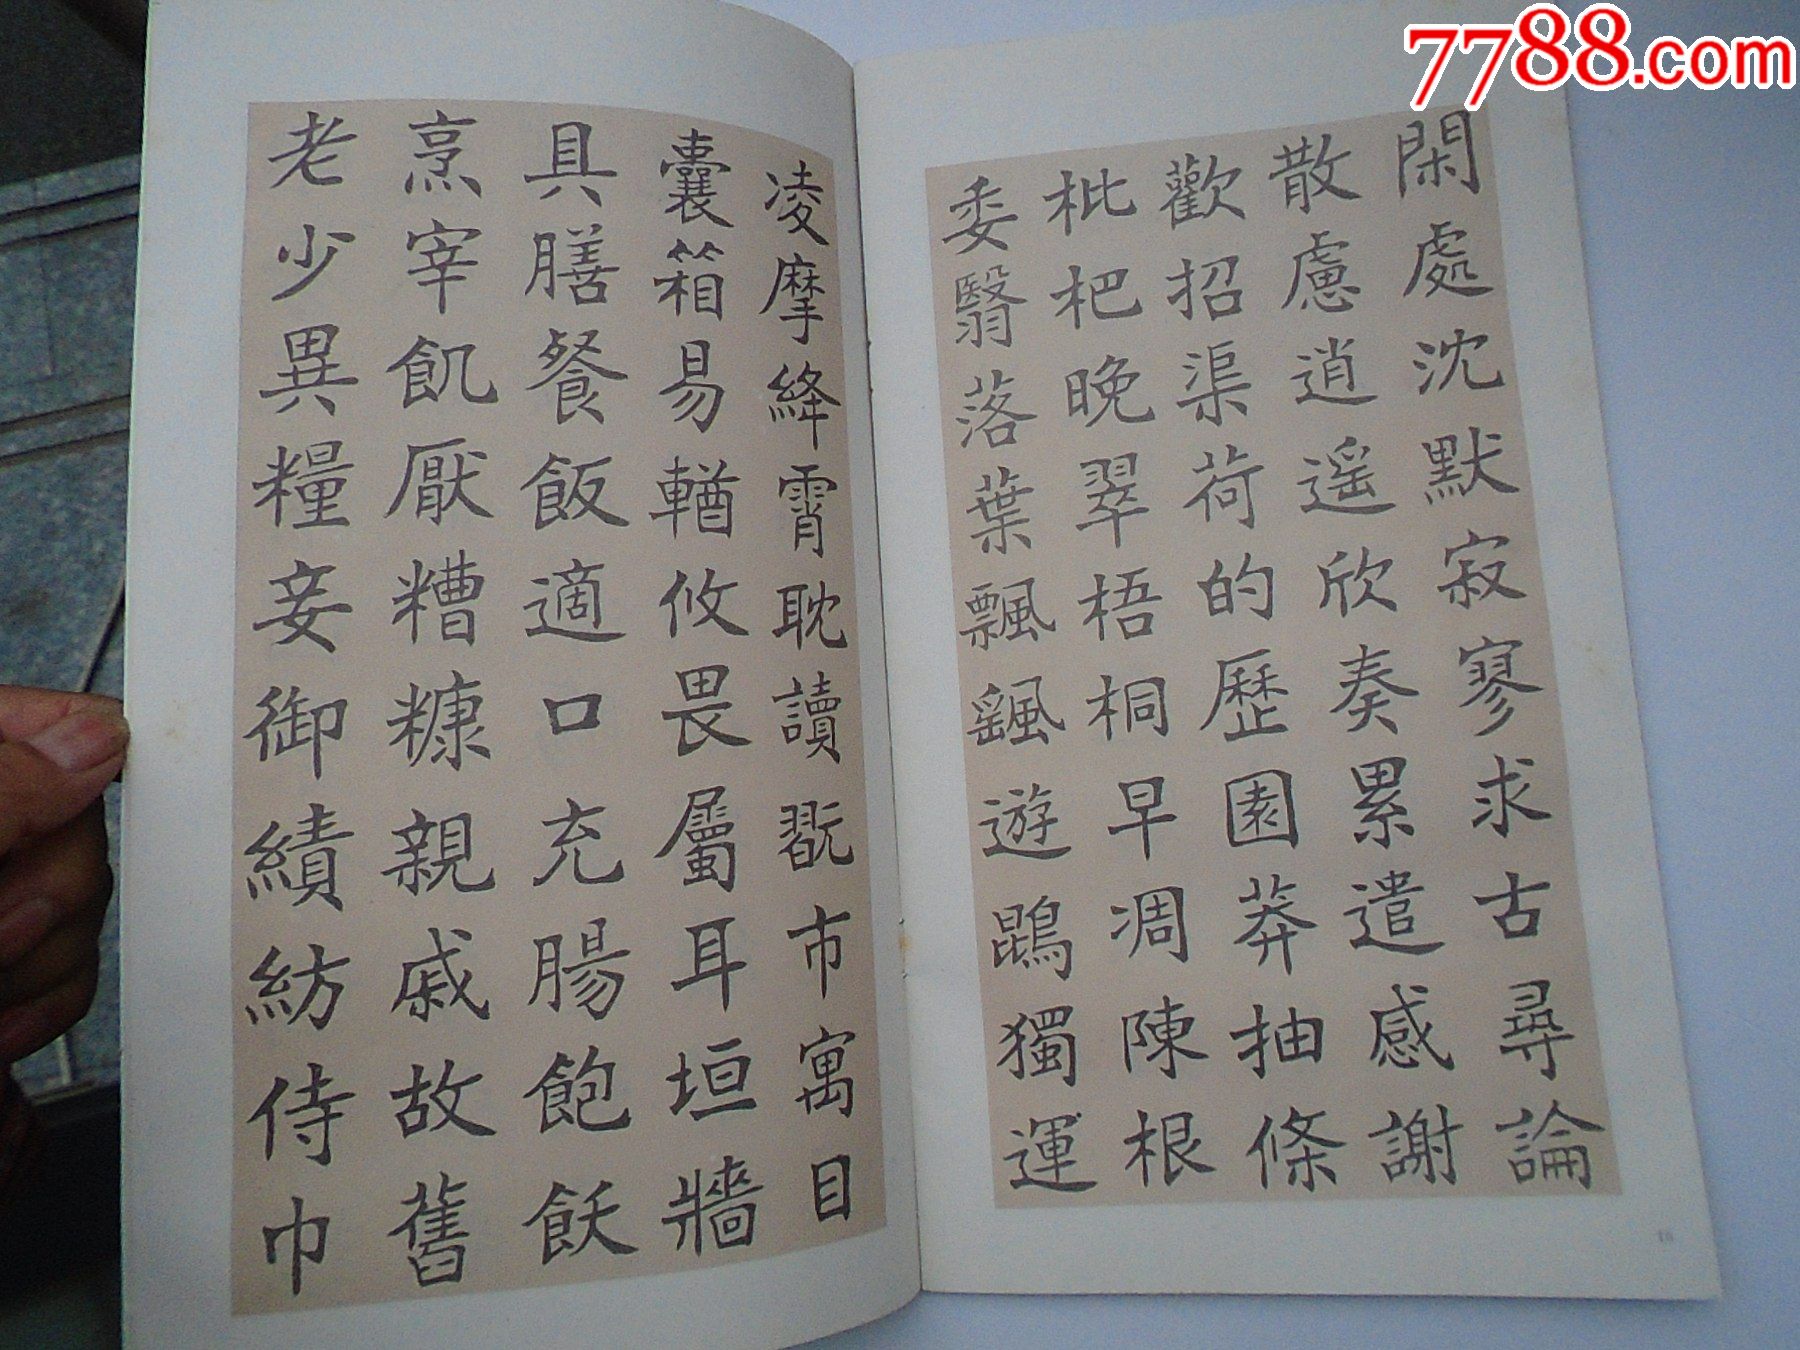 7788.com
閑處沈默寂寥求古尋論
散慮逍遙欣奏累遣感謝
歡招渠荷的歷園莽抽條
枇杷晚翠梧桐早凋陳根
委翳落葉飄颻遊鵾獨運
凌摩絳霄耽讀翫市寓目
囊箱易輶攸畏屬耳垣牆
具膳餐飯適口充腸飽飫
烹宰飢厭糟糠親戚故舊
老少異糧妾御績紡侍巾